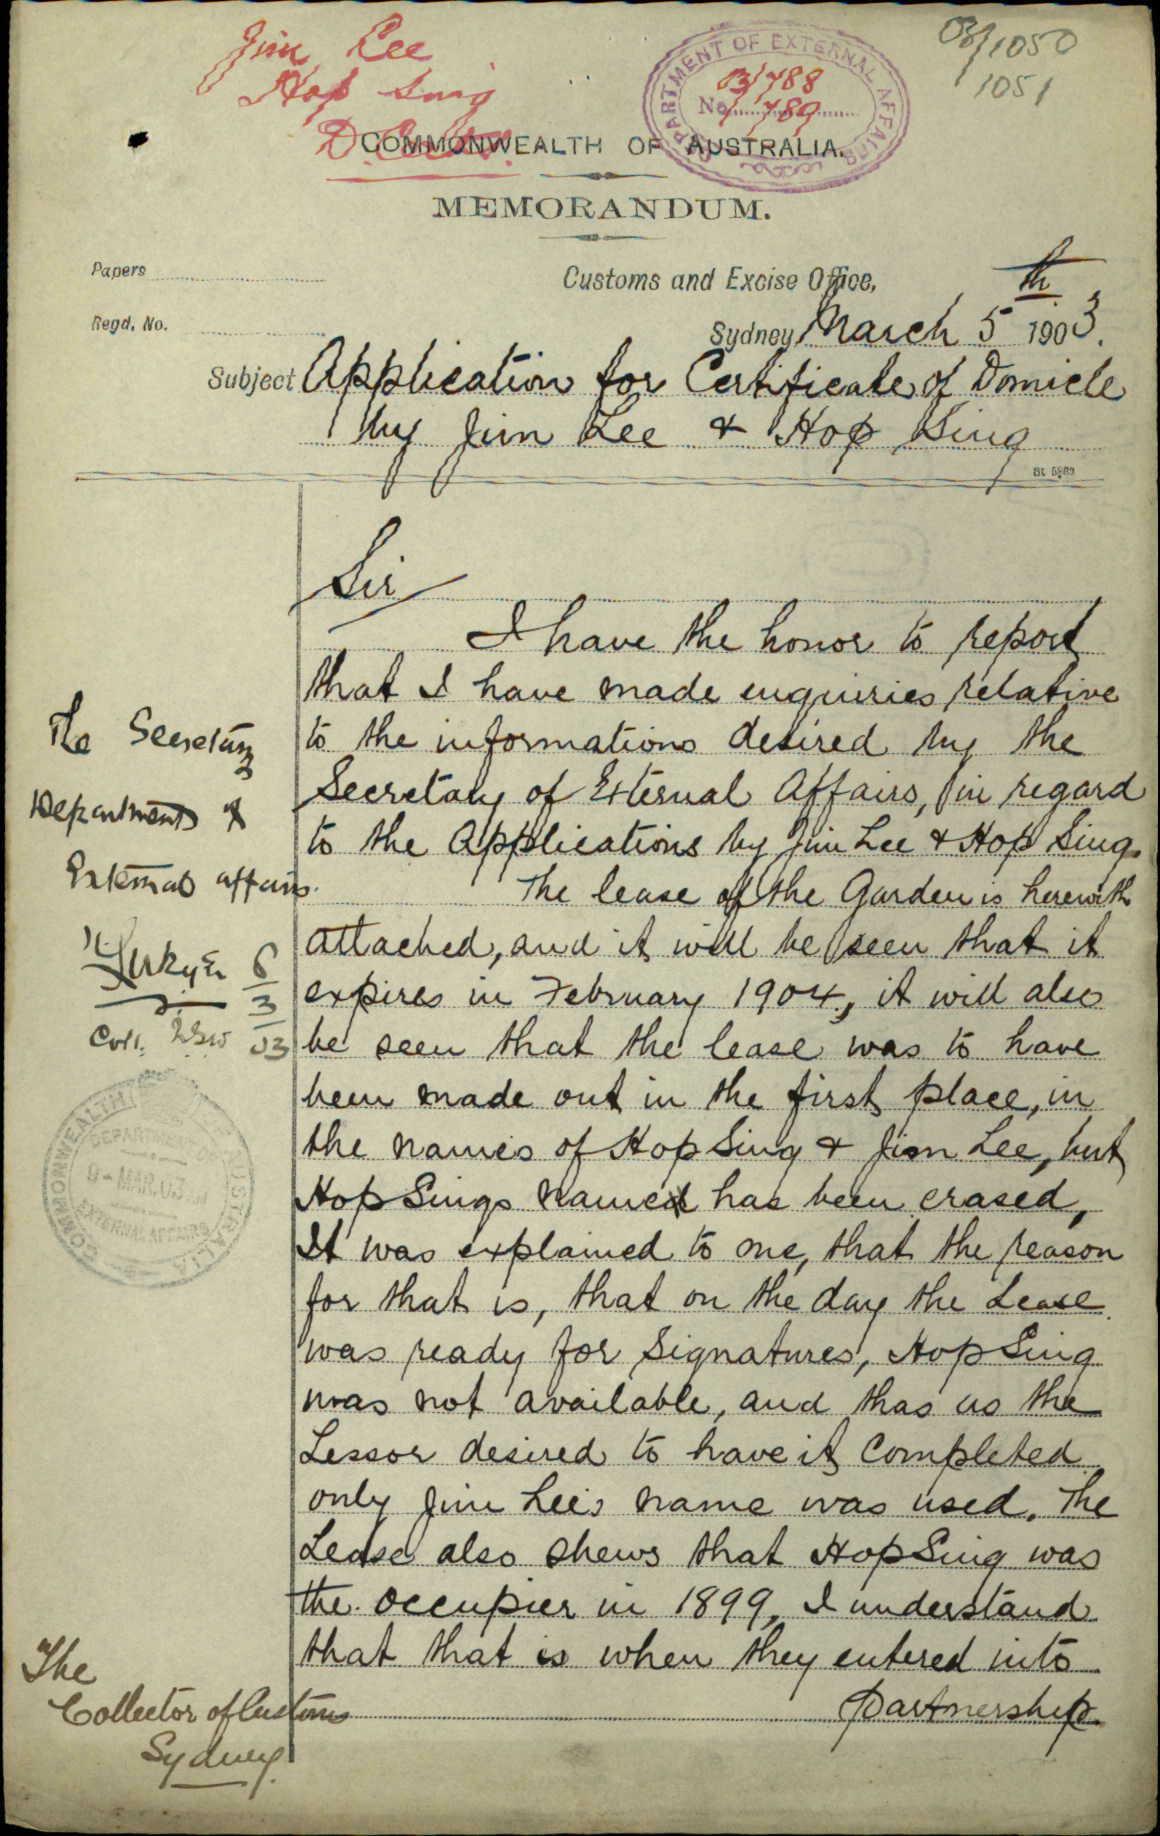 Jim Lee
Hop Sing
DEPARTMENT OF EXTERNAL AFFAIRS
03/788
No. 789
03/1050
1051
COMMONWEALTH OF AUSTRALIA.
MEMORANDUM.
Papers
Customs and Excise Office,
Regd. No.
Sydney, March 5th 1903.
Subject Application for Certificate of Domicle
by Jim Lee & Hop Sing
Sir
I have the honor to report
that I have made enquiries relative
to the informations desired by the
Secretary of External Affairs, in regard
to the Applications by Jim Lee & Hop Sing.
The lease of the Garden is herewith
attached, and it will be seen that it
expires in February 1904, it will also
be seen that the lease was to have
been made out in the first place, in
the names of Hop Sing & Jim Lee, but
Hop Sings name has been erased,
It was explained to me, that the reason
for that is, that on the day the Lease
was ready for Signatures, Hop Sing
was not available, and thas as the
Lessor desired to have it Completed
only Jim Lee's name was used. The
Lease also shews that Hop Sing was
the occupier in 1899, I understand
that that is when they entered into
partnership.
The Secretary
Department of
External affairs.
6/3/03
Coll. NSW
COMMONWEALTH OF AUSTRALIA
DEPARTMENT
9-MAR.03
EXTERNAL AFFAIRS
The
Collector of Customs
Sydney.